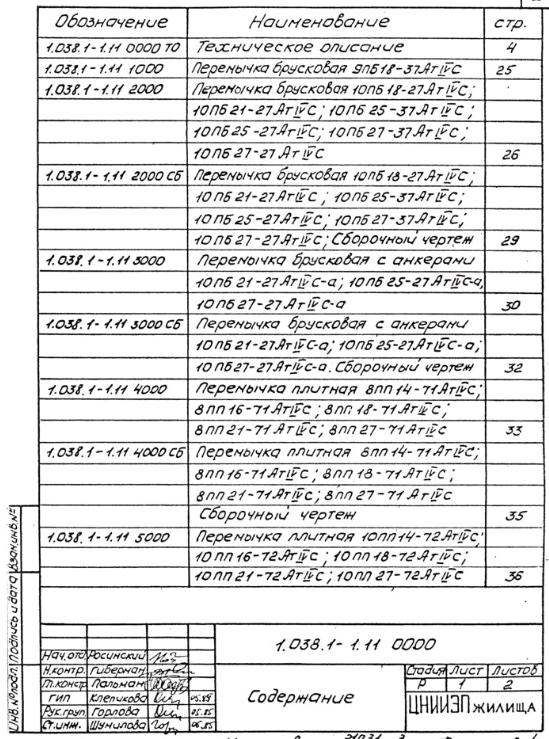 Обозначение Наименование стр.
1.038.1-1.11 0000 ТО Техническое описание 4
1.038.1-1.11 1000 Перемычка брусковая 9ПБ18-37АтIVС 25
1.038.1-1.11 2000 Перемычка брусковая 10ПБ 18-27АтIVС;
10ПБ 21-27АтIVС; 10ПБ 25-37АтIVС;
10ПБ 25-27АтIVС; 10ПБ 27-37АтIVС;
10ПБ 27-27 АтIVС 26
1.038.1-1.11 2000 СБ Перемычка брусковая 10ПБ 18-27АтIVС;
10ПБ 21-27АтIVС; 10ПБ 25-37АтIVС;
10ПБ 25-27АтIVС; 10ПБ 27-37АтIVС;
10ПБ 27-27АтIVС; Сборочный чертеж 29
1.038.1-1.11 3000 Перемычка брусковая с анкерами
10ПБ 21-27АтIVС-а; 10ПБ 25-27АтIVС-а;
10ПБ 27-27АтIVС-а 30
1.038.1-1.11 3000 СБ Перемычка брусковая с анкерами
10ПБ 21-27АтIVС-а; 10ПБ 25-27АтIVС-а;
10ПБ27-27АтIVС-а. Сборочный чертеж 32
1.038.1-1.11 4000 Перемычка плитная 8ПП 14-71АтIVС;
8ПП 16-71АтIVС; 8ПП 18-71АтIVС;
8ПП 21-71АтIVС; 8ПП 27-71 АтIVС 33
1.038.1-1.11 4000 СБ Перемычка плитная 8ПП 14-71АтIVС;
8ПП 16-71АтIVС; 8ПП 18-71АтIVС;
8ПП 21-71АтIVС; 8ПП 27-71 АтIVС
Сборочный чертеж 35
1.038.1-1.11 5000 Перемычка плитная 10ПП14-72АтIVС;
10ПП 16-72АтIVС; 10ПП 18-72АтIVС;
10ПП 21-72АтIVС; 10ПП 27-72АтIVС 36
Инв.№подл. Подпись и дата Взам.инв.№
1.038.1-1.11 0000
Нач.отд Росинский
Н.контр. Гиберман
Гл.констр Пальман
ГИП Клепикова 05.85
Рук.груп. Горлова 05.85
Ст.инж. Шумилова 05.85
Содержание
Стадия Лист Листов
Р 1 2
ЦНИИЭП жилища